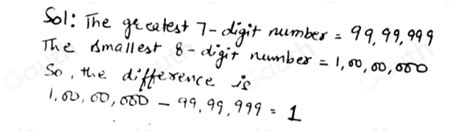 Sol: The greatest 7-digit number = 99,99,999
The smallest 8-digit number = 1,00,00,000
So, the difference is
1,00,00,000 - 99,99,999 = 1